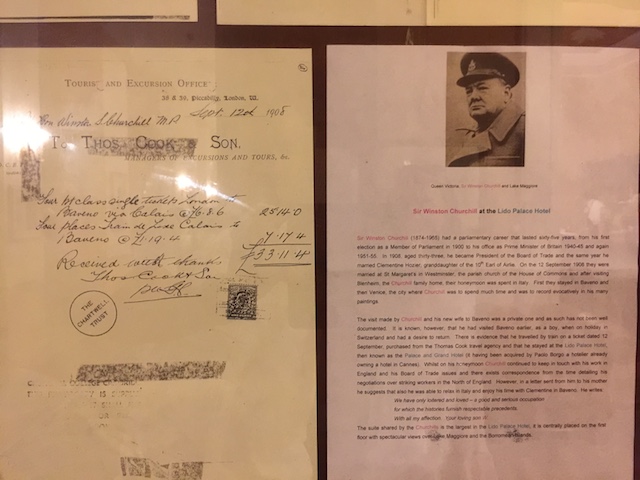 TOURIST AND EXCURSION OFFICE
38 & 39, Piccadilly, London, W.
Sept. 12th 1908
Hon Winston S. Churchill M.P.
To THOS. COOK & SON,
MANAGERS OF EXCURSIONS AND TOURS, &c.
Four class single tickets London to
Baveno via Calais @ 6.8.6 25.14.0
Four places Train de Luxe Calais to
Baveno @ 1.19.4 7.17.4
£33.11.4
Received with thanks
Thos Cook & Son
THE
CHARTWELL
TRUST
Queen Victoria, Sir Winston Churchill and Lake Maggiore
Sir Winston Churchill at the Lido Palace Hotel
Sir Winston Churchill (1874-1965) had a parliamentary career that lasted sixty-five years, from his first
election as a Member of Parliament in 1900 to his office as Prime Minister of Britain 1940-45 and again
1951-55. In 1908, aged thirty-three, he became President of the Board of Trade and the same year he
married Clementine Hozier, granddaughter of the 10th Earl of Airlie. On the 12 September 1908 they were
married at St Margaret's in Westminster, the parish church of the House of Commons and after visiting
Blenheim, the Churchill family home, their honeymoon was spent in Italy. First they stayed in Baveno and
then Venice, the city where Churchill was to spend much time and was to record evocatively in his many
paintings.
The visit made by Churchill and his new wife to Baveno was a private one and as such has not been well
documented. It is known, however, that he had visited Baveno earlier, as a boy, when on holiday in
Switzerland and had a desire to return. There is evidence that he travelled by train on a ticket dated 12
September, purchased from the Thomas Cook travel agency and that he stayed at the Lido Palace Hotel,
then known as the Palace and Grand Hotel (it having been acquired by Paolo Borgo a hotelier already
owning a hotel in Cannes). Whilst on his honeymoon Churchill continued to keep in touch with his work in
England and his Board of Trade issues and there exists correspondence from the time detailing his
negotiations over striking workers in the North of England. However, in a letter sent from him to his mother
he suggests that also he was able to relax in Italy and enjoy his time with Clementine in Baveno. He writes:
We have only loitered and loved – a good and serious occupation
for which the histories furnish respectable precedents.
With all my affection. Your loving son W.
The suite shared by the Churchills is the largest in the Lido Palace Hotel, it is centrally placed on the first
floor with spectacular views over Lake Maggiore and the Borromean Islands.